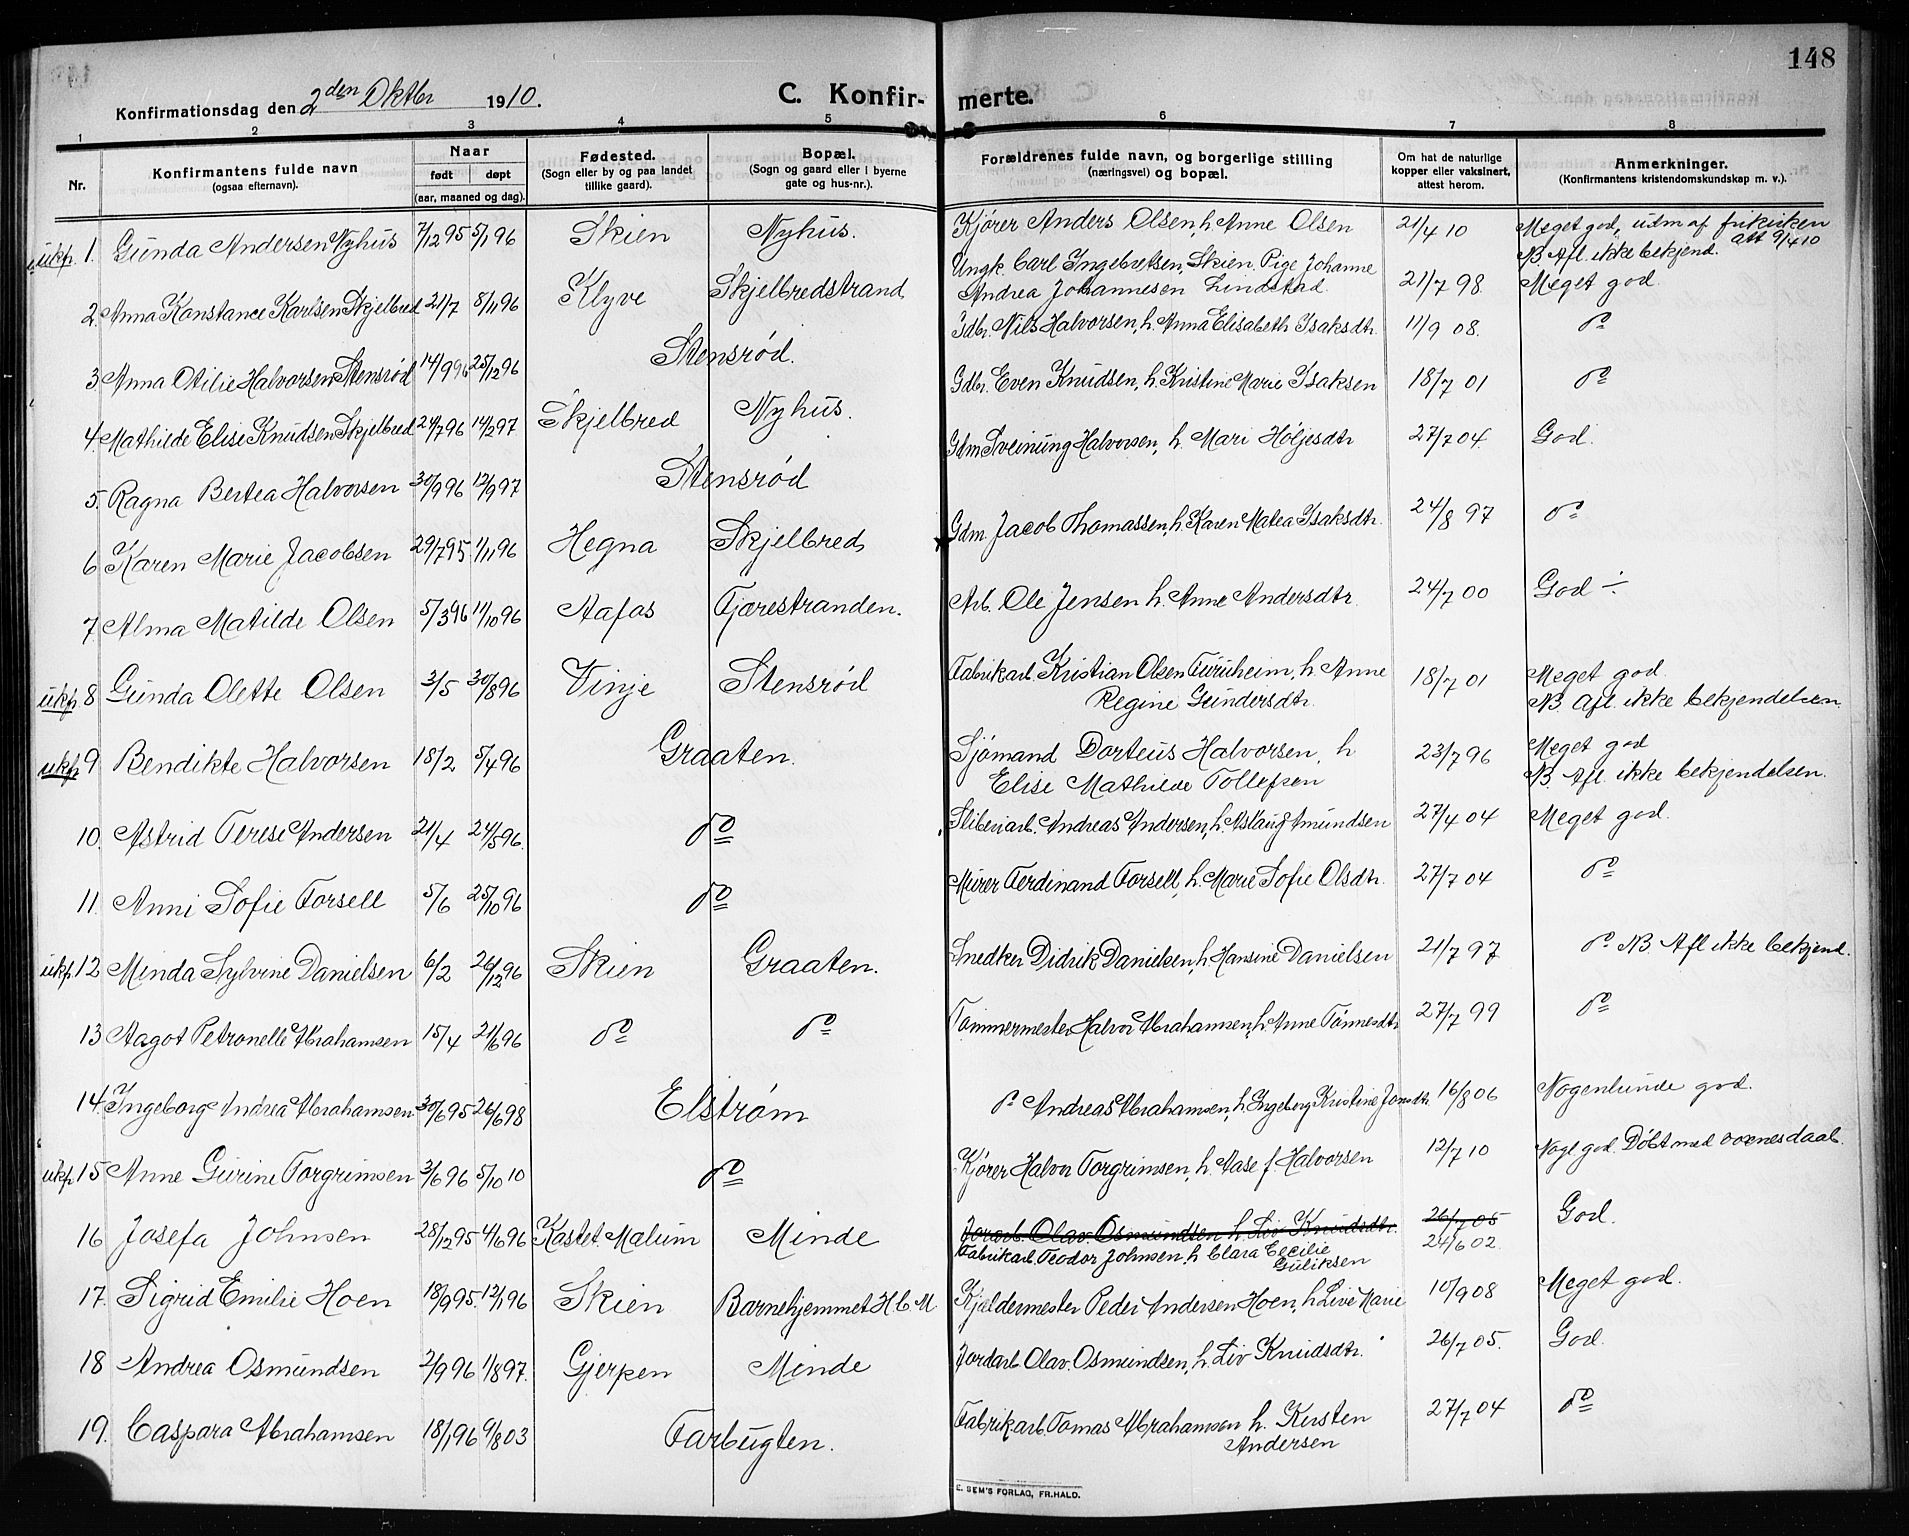 148
Konfirmationsdag den 2den Oktbr 1910.
C. Konfir- merte.
1 2 3 4 5 6 7 8
Nr.
Konfirmantens fulde navn (ogsaa efternavn).
Naar født døpt (aar, maaned og dag).
Fødested. (Sogn eller by og paa landet tillike gaard).
Bopæl. (Sogn og gaard eller i byerne gate og hus-nr.).
Forældrenes fulde navn, og borgerlige stilling (næringsvei) og bopæl.
Om hat de naturlige kopper eller vaksinert, attest herom.
Anmerkninger. (Konfirmantens kristendomskundskap m. v.).
ukf. 1. Gunda Andersen Nyhus 7/12 95 5/1 96 Skien Nyhus. Kjører Anders Olsen, h. Anne Olsen 21/4 10 Meget god, utm af frikirken att 9/4 10
NB Afl. ikke bekjend.
2. Anna Konstance Karlsen Skjelbred 21/7 8/11 96 Klyve Skjelbredstrand Ungk. Carl Ingebretsen, Skien. Pige Johanne
Andrea Johannesen Lindstad. 21/7 98. Meget god.
3. Anna Otilie Halvorsen Stensrød 14/9 96 25/12 96 Stensrød. Gdbr. Nils Halvorsen, h. Anna Elisabeth Isaksdtr. 11/9 08. do
4. Mathilde Elise Knudsen Skjelbred 24/7 96 14/2 97 Skjelbred Nyhus. Gdbr. Even Knudsen, h. Kristine Marie Isaksen 18/7 01 do
5. Ragna Bertea Halvorsen 30/9 96 12/9 97 Stensrød Gdm Sveinung Halvorsen, h. Mari Høljesdtr 27/7 04. God.
6 Karen Marie Jacobsen 29/7 95 1/11 96 Hegna Skjelbred Gdm Jacob Thomassen, h. Karen Matea Isaksdtr. 24/8 97 do
7 Alma Matilde Olsen 5/3 96 11/10 96 Aafos Tjærestranden. Arb. Ole Jensen h. Anne Andersdtr 24/7 00 God ÷
ukf. 8 Gunda Olette Olsen 3/5 30/8 96 Vinje Stensrød Fabrikarb. Kristian Olsen Furuheim, h. Anne
Regine Gundersdtr. 18/7 01 Meget god.
NB. Afl. ikke bekjendelsen.
ukf. 9 Bendikte Halvorsen 18/2 5/4 96 Graaten. Sjømand Dorteus Halvorsen, h
Elise Mathilde Tollefsen 23/7 96 Meget god
NB. Afl. ikke bekjendelsen.
10. Astrid Terese Andersen 21/4 24/5 96. do Sliberiarb. Andreas Andersen, h. Aslaug Amundsen 27/4 04 Meget god.
11. Anni Sofie Forsell 5/6 25/10 96 do Murer Ferdinand Forsell, h. Marie Sofie Olsdtr. 27/7 04 do
ukf. 12 Minda Sylvine Danielsen 6/2 26/12 96 Skien Graaten. Snedker Didrik Danielsen, h. Hansine Danielsen 21/7 97 do NB. Afl ikke bekjend.
13 Aagot Petronelle Abrahamsen 15/4 21/6 96 do do Tømmermester Halvor Abrahamsen, h. Anne Tønnesdtr 27/7 99 do
14. Ingeborg Andrea Abrahamsen 30/6 95 26/6 98 Elstrøm do Andreas Abrahamsen, h. Ingeborg Kristine Jonsdtr 16/8 06 Nogenlunde god.
ukf 15 Anne Gurine Torgrimsen 3/6 96 5/10 10 do Kjører Halvor Torgrimsen, h. Aase f. Halvorsen 12/7 10 Nogl god. Døbt med voxnesdaab.
16 Josefa Johnsen 28/12 95 4/6 96 Kastet. Mælum Minde Jorarb. Olav Osmundsen h. Liv Knudsdtr. 26/7 05 God.
Fabrikarb. Teodor Johnsen, h Clara Cecilie
Guliksen 24/6 02.
17. Sigrid Emilie Hoen 18/9 95. 12/1 96 Skien Barnehjemmet H b M Kjeldermester Peder Andersen Hoen, h. Live Marie 10/9 08 Meget god.
18 Andrea Osmundsen 2/9 96 1/8 97. Gjerpen Minde Jordarb. Olav. Osmundsen, h. Liv Knudsdtr. 26/7 05. God.
19. Caspara Abrahamsen 18/1 96 9/8 03 Farbugten. Fabrik.arb. Tomas Abrahamsen h. Kirsten
Andersen 27/7 04 do
E. SEM'S FORLAG, FR.HALD.